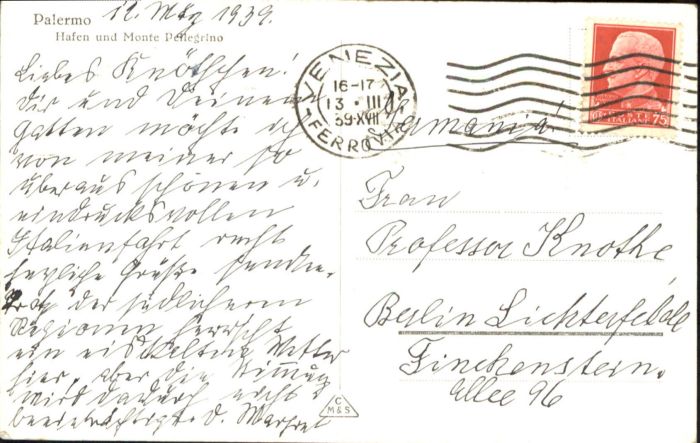 Palermo 12. März 1939.
Hafen und Monte Pellegrino
Liebes Knöthchen!
Dir und Deinem
Gatten möchte ich
von meiner so
überaus schönen u.
eindrucksvollen
Italienfahrt recht
herzliche Grüße senden.
Trotz der südlicheren
Regionen herrscht
ein eiskaltes Wetter
hier, aber die Stimmung
wird dadurch nicht
beeinträchtigt. D. Margret
VENEZIA
16-17
13 · III
39·XVII
FERROVIA
Germania!
POSTE ITALIANE
75
Frau
Professor Knothe
Berlin Lichterfelde
Finckenstein.
Allee 96
C
M&S